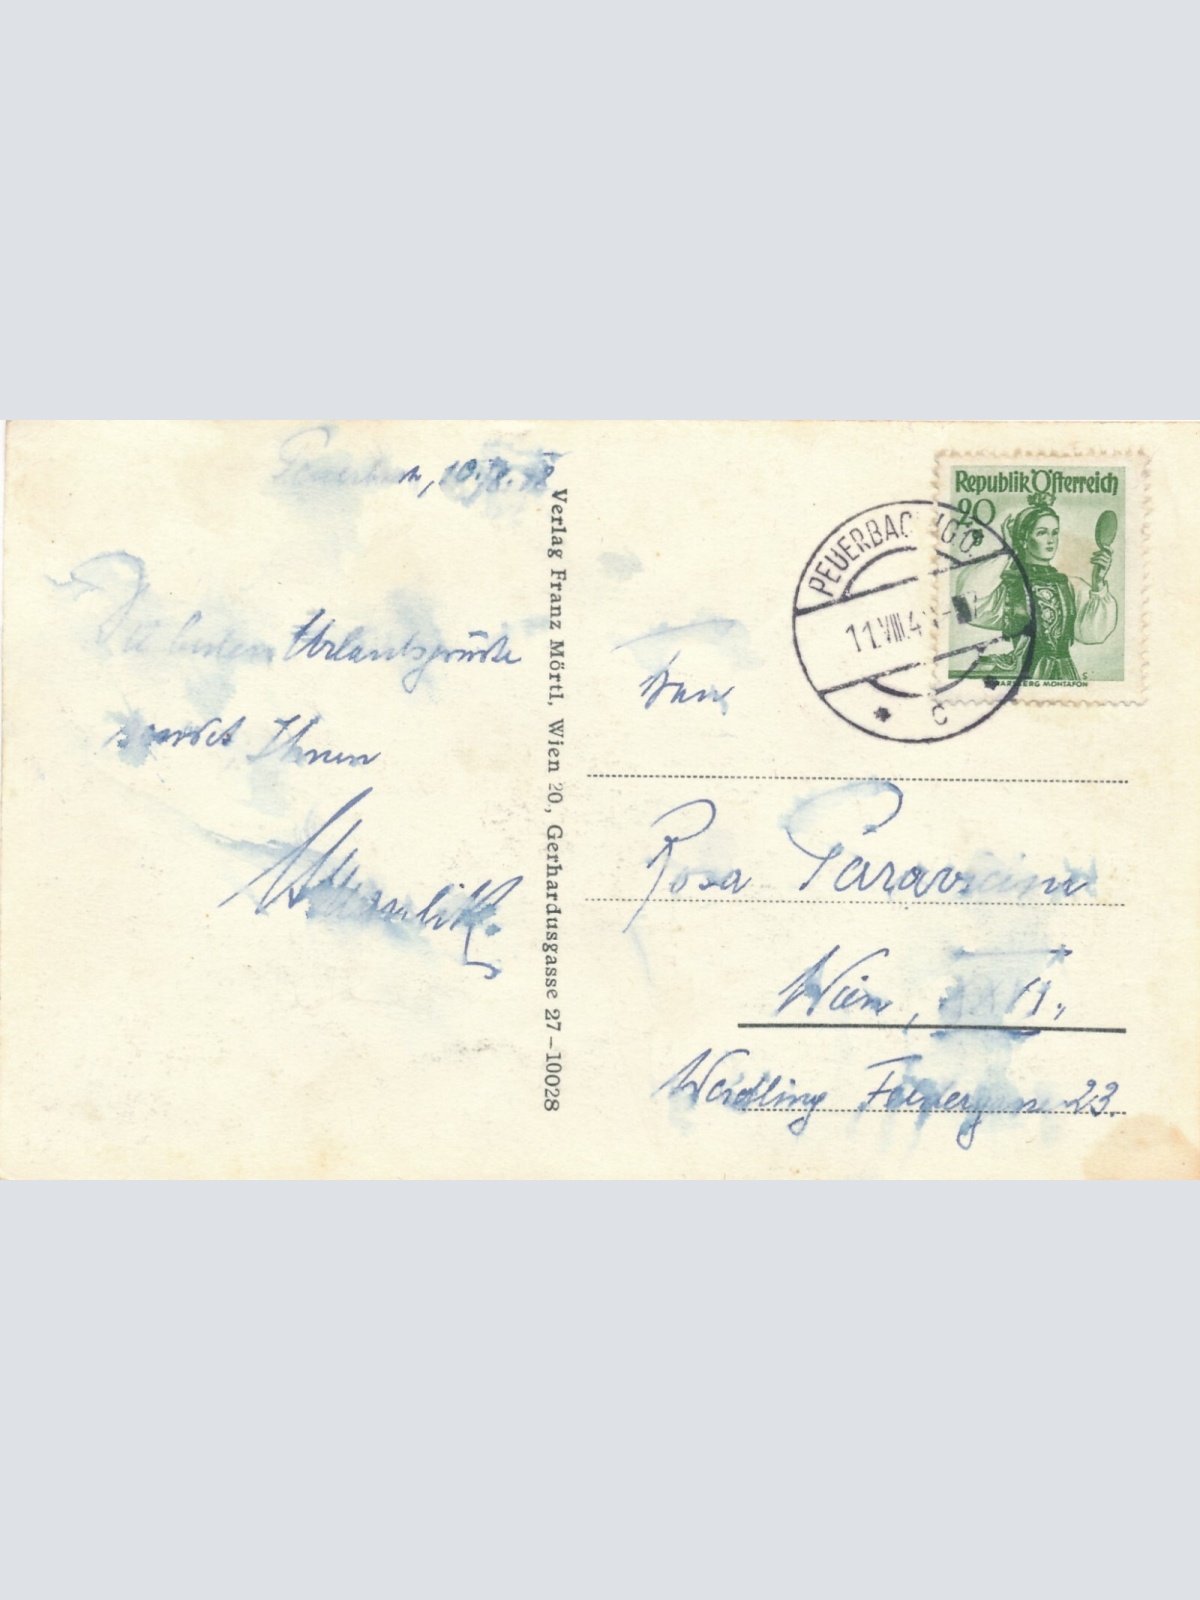 Peuerbach, 10./8. 48
Die besten Urlaubsgrüße
sendet Ihnen
Verlag Franz Mörtl, Wien 20., Gerhardusgasse 27 – 10028
Republik Österreich
20
g
ARLBERG MONTAFON
PEUERBACH
11.VIII.4
c
Frau
Rosa Paravicini
Wien,
Weidling 23.